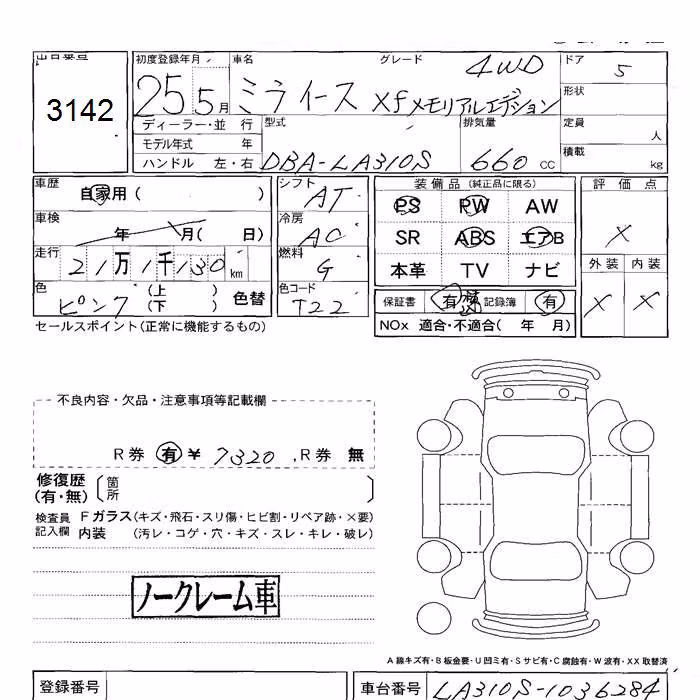 初度登録年月 車名 グレード 4WD ドア 5
3142 25 5月 ミライース Xfメモリアルエディション 形状
ディーラー・並 行 型式 排気量 定員 人
モデル年式 年 DBA-LA310S 660 CC 積載 kg
ハンドル 左・右
車歴 自家用 ( ) シフト AT 装備品 (純正品に限る) 評価点
車検 年 月( 日) 冷房 AC PS PW AW X
走行 21万1千130km 燃料 G SR ABS エアB 外装 内装
本革 TV ナビ X X
色 ピンク (上 ) (下 ) 色替 色コード T22 保証書 有 記録簿 有
NOx 適合・不適合( 年 月)
セールスポイント(正常に機能するもの)
不良内容・欠品・注意事項等記載欄
R券 有 ¥ 7320 ,R券 無
修復歴 (有・無) 箇所
検査員記入欄 Fガラス(キズ・飛石・スリ傷・ヒビ割・リペア跡・×要)
内装 (汚レ・コゲ・穴・キズ・スレ・キレ・破レ)
ノークレーム車
A 線キズ有・B 板金要・U 凹ミ有・S サビ有・C 腐蝕有・W 波有・XX 取替済
登録番号 車台番号 LA310S-1036284